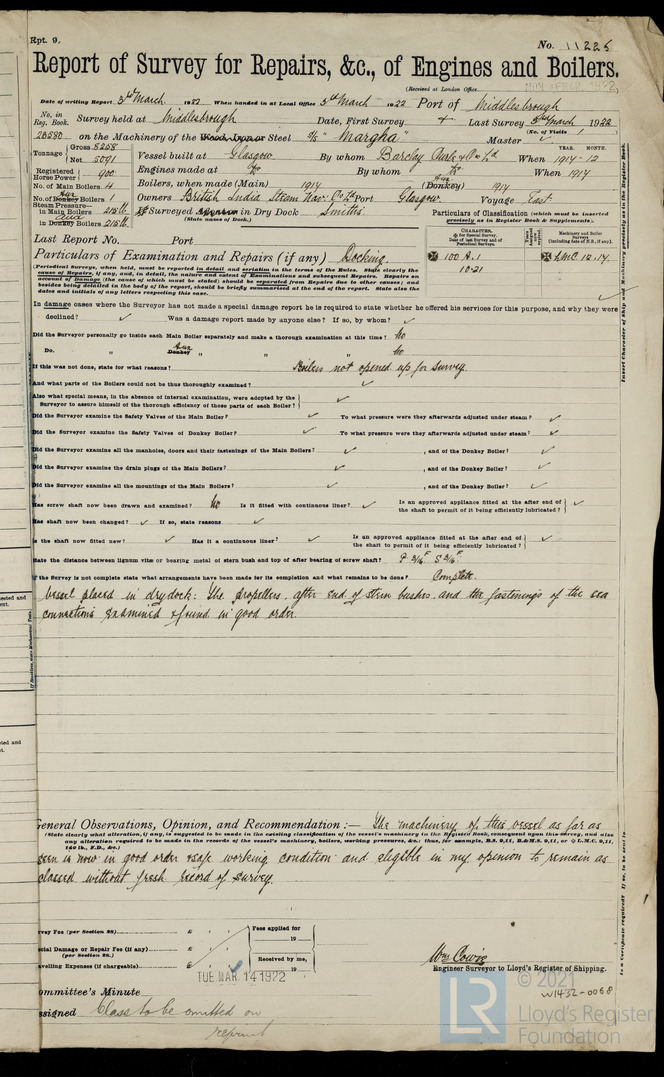 Rpt. 9.
No. 11225
Report of Survey for Repairs, &c., of Engines and Boilers.
(Received at London Office
Date of writing Report 3rd March 1922 When handed in at Local Office 3rd March 1922 Port of Middlesbrough
No. in Reg. Book. Survey held at Middlesbrough Date, First Survey Last Survey 3rd March 1922
(No. of Visits 1)
on the Machinery of the Wood, Iron or Steel S/S "Margha" Master ✓
Tonnage Gross 8258 Net 5091
Vessel built at Glasgow By whom Barclay Curle & Co Ld When 1914-12
Registered Horse Power 900
Engines made at do By whom do When 1914
No. of Main Boilers 4
Boilers, when made (Main) 1914 (Donkey) Aux 1914
No. of Donkey Boilers Aux 1
Owners British India Steam Nav: Co Ld Port Glasgow Voyage East.
Steam Pressure— in Main Boilers 215 lb
in Donkey Boilers 215 lb
If Surveyed Afloat or in Dry Dock Smiths.
(State name of Dock.)
Particulars of Classification (which must be inserted precisely as in Register Book & Supplements.)
Last Report No. Port
Particulars of Examination and Repairs (if any) Docking.
CHARACTER.
100 A.1
10.21
Machinery and Boiler Surveys (including date of N.B., if any).
LMC 12.14.
(Periodical Surveys, when held, must be reported in detail and seriatim in the terms of the Rules. State clearly the
cause of Repairs, if any, and, in detail, the nature and extent of Examinations and subsequent Repairs. Repairs on
account of Damage (the cause of which must be stated) should be separated from Repairs due to other causes; and
besides being detailed in the body of the report, should be briefly summarised at the end of the report. State also the
dates and initials of any letters respecting this case.
In damage cases where the Surveyor has not made a special damage report he is required to state whether he offered his services for this purpose, and why they were
declined? ✓ Was a damage report made by anyone else? If so, by whom? ✓
Did the Surveyor personally go inside each Main Boiler separately and make a thorough examination at this time? No
Do. " Aux Donkey " " " No
If this was not done, state for what reasons? Boilers not opened up for survey.
And what parts of the Boilers could not be thoroughly examined? ✓
Also what special means, in the absence of internal examination, were adopted by the
Surveyor to assure himself of the thorough efficiency of those parts of each Boiler? ✓
Did the Surveyor examine the Safety Valves of the Main Boiler? ✓ To what pressure were they afterwards adjusted under steam? ✓
Did the Surveyor examine the Safety Valves of Donkey Boiler? ✓ To what pressure were they afterwards adjusted under steam? ✓
Did the Surveyor examine all the manholes, doors and their fastenings of the Main Boilers? ✓ , and of the Donkey Boiler? ✓
Did the Surveyor examine the drain plugs of the Main Boilers? ✓ , and of the Donkey Boiler? ✓
Did the Surveyor examine all the mountings of the Main Boilers? ✓ , and of the Donkey Boiler? ✓
Has screw shaft now been drawn and examined? No Is it fitted with continuous liner? ✓ Is an approved appliance fitted at the after end of the shaft to permit of it being efficiently lubricated? ✓
Has shaft now been changed? ✓ If so, state reasons ✓
Is the shaft now fitted new? ✓ Has it a continuous liner? ✓ Is an approved appliance fitted at the after end of the shaft to permit of it being efficiently lubricated? ✓
State the distance between lignum vitæ or bearing metal of stern bush and top of after bearing of screw shaft? P 3/16 F. S 3/16 F.
If the Survey is not complete state what arrangements have been made for its completion and what remains to be done? Complete.
Vessel placed in drydock: The propellers, after end of stern bushes, and the fastenings of the sea
connections examined & found in good order.
General Observations, Opinion, and Recommendation:— The machinery of this vessel as far as
(State clearly what alteration, if any, is suggested to be made in the existing classification of the vessel's machinery in the Register Book, consequent upon this survey, and also
any alteration required to be made in the records of the vessel's machinery, boilers, working pressures, &c.: thus, for example, B.S. 9,11, B.&M.S. 9,11, or L.M.C. 9,11,
140 lb., F.D., &c.)
seen is now in good order & safe working condition and eligible in my opinion to remain as
classed without fresh record of survey.
Survey Fee (per Section 28) £
Special Damage or Repair Fee (if any) £
(per Section 28.)
Travelling Expenses (if chargeable) £
Fees applied for 19
Received by me, 19
TUE. MAR. 14 1922
Wm Cowie
Engineer Surveyor to Lloyd's Register of Shipping.
Committee's Minute
Assigned Class to be omitted on
reprint
© 2021
W1432-0068
LR
Lloyd's Register
Foundation